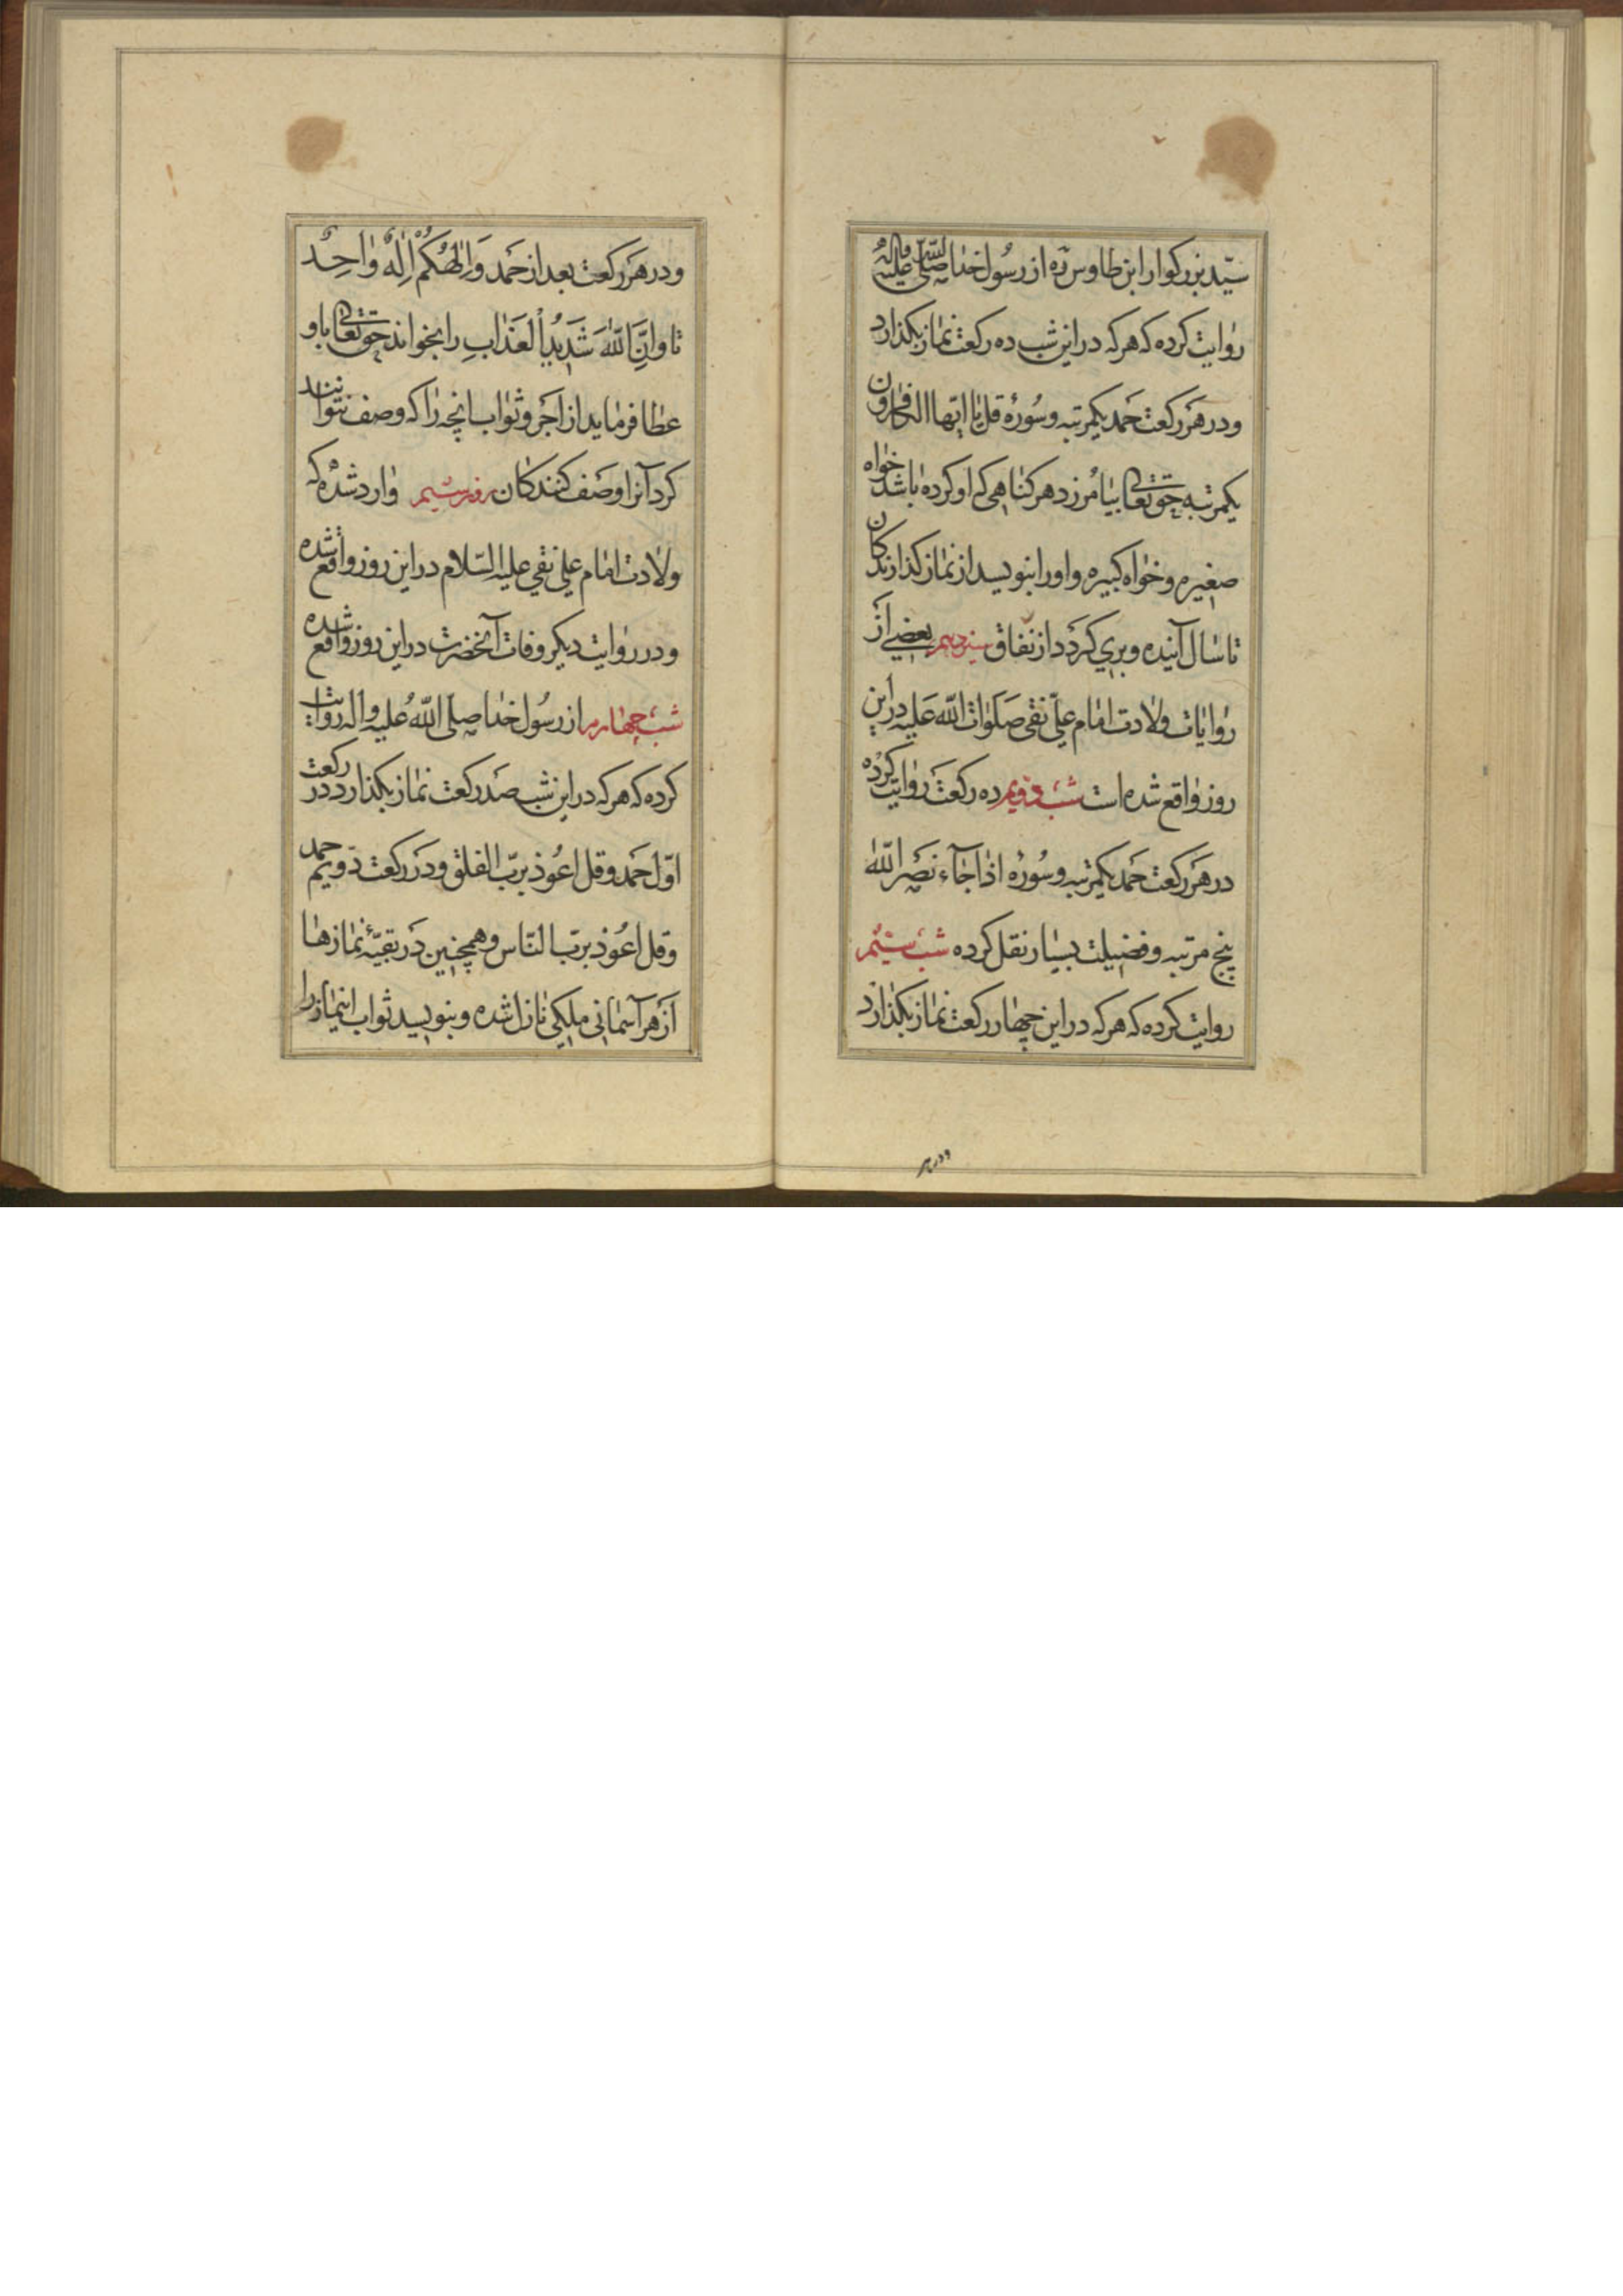 سیّد بزرکوار ابن طاوس ره از رسول خدا صلّی اللّه علیه واله
روایت کرده که هر که در این شب ده رکعت نماز بکذارد
ودر هر رکعت حمد یکمرتبه وسوره قل یا ایها الکافرون
یکمرتبه حقتعالی بیامرزد هر کناهی که او کرده باشد خواه
صغیره وخواه کبیره واو را بنویسد از نماز کذارندکان
تا سال آینده وبری کردد از نفاق بعضی از
روایات ولادت امام علی نقی صلوات اللّه علیه در این
روز واقع شده است شب دویم ده رکعت روایت کرده
در هر رکعت حمد یکمرتبه وسوره اذا جآء نصر اللّه
پنج مرتبه وفضیلت بسیار نقل کرده شب سیّم
روایت کرده که هر که در این چهار رکعت نماز بکذارد
ودر هر
ودر هر رکعت بعد از حمد وَاِلٰهُکُمْ اِلٰهٌ وٰاحِدٌ
تا وانَّ اللّٰهَ شَدیدُ الْعَذٰابِ را بخواند حقتعالی باو
عطا فرماید از اجر وثواب انچه را که وصف نتوانند
کرد آنرا وصف کنندکان روز سیّم وارد شده که
ولادت امام علی نقی علیه السّلام در این روز واقع شده
ودر روایت دیکر وفات آنحضرت در این روز واقع شده
شب چهارم از رسول خدا صلّی اللّه علیه واله روایت
کرده که هر که در این شب صد رکعت نماز بکذارد در رکعت
اوّل حمد وقل اعوذ بربّ الفلق ودر رکعت دویم حمد
وقل اعوذ بربّ النّاس وهمچنین در بقیّه نمازها
از هر آسمانی ملکی نازل شده وبنویسد ثواب اینماز را